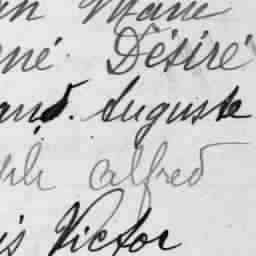 Marie
né Désiré
and. Auguste
Alfred
is Victor